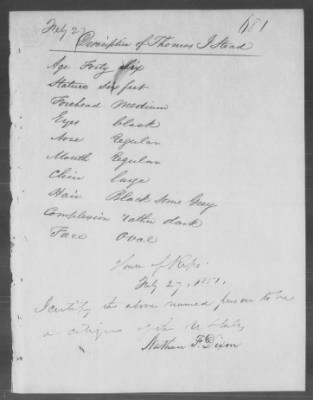 July 27
681
Description of Thomas J Stead
Age Forty Six
Stature Six feet
Forehead Medium
Eyes black
Nose Regular
Mouth Regular
Chin large
Hair Black Some Grey
Complexion rather dark
Face Oval
House of Reps
July 27, 1851.
I certify the above named person to be
a citizen of the U States
Nathan F. Dixon